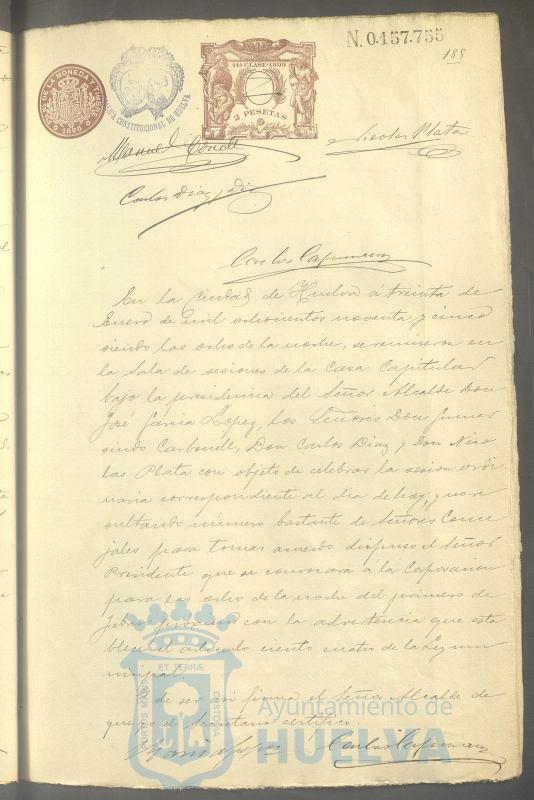 N. 0.457.755
185
FÁB. DE LA MONEDA Y TIMBRE
1895
ALCALDIA CONSTITUCIONAL DE HUELVA
11ª CLASE-1895
2 PESETAS
Manuel
Nicolas Plata
Carlos Diaz y Diz
Carlos
En la Ciudad de Huelva á treinta de
Enero de mil ochocientos noventa y cinco
siendo las ocho de la noche, se reunieron en
la Sala de sesiones de la Casa Capitular
bajo la presidencia del Señor Alcalde Don
José Garcia Lopez, los Señores Don Gumer
sindo Carbonell, Don Carlos Diaz y Don Nico
las Plata con objeto de celebrar la sesion ordi
naria correspondiente al dia de hoy, y no re
sultando número bastante de Señores Conce
jales para tomar acuerdo dispuso el Señor
Presidente que se convocara á la Corporacion
para las ocho de la noche del primero de
Febrero proximo con la advertencia que esta
blece el articulo ciento cuatro de la Ley mu
nicipal.
Y de ser asi firma el Señor Alcalde de
que yo el Secretario certifico.
Garcia Lopez
Carlos
PORTUS MARIS
ET TERRÆ
CUSTODIA
Ayuntamiento de
HUELVA